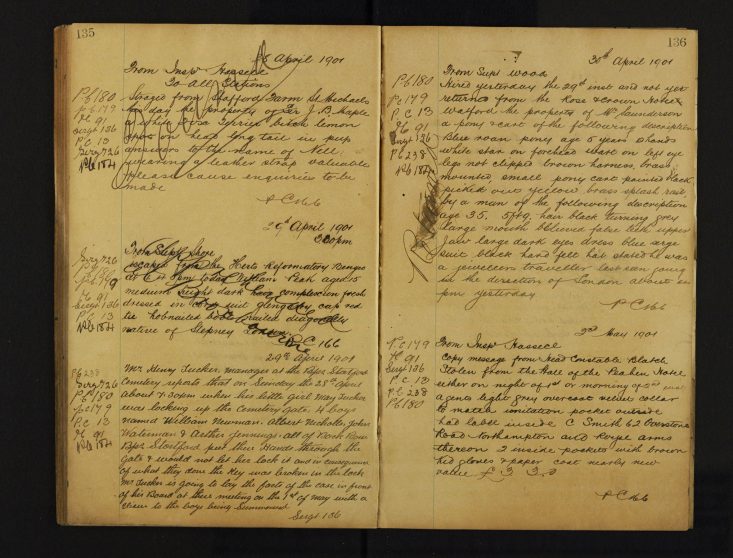 135
8 April 1901
From Inspr Hassell
To All Stations
Strayed from Stafford Farm St Michaels
to day the property of Sir J. B. Maple
a white Fox Terrier bitch lemon
spot on head long tail in pup
answers to the name of Nell,
wearing a leather strap valuable
please cause enquiries to be
made
PC 166
Pc 180
pc 179
P C 13
H 91
Sergt 136
P.C 13
Serg 726
Pc 184
29th April 1901
2.20pm
From Supt Shore
Escaped from the Herts Reformatory Bengeo
at 6 am today William Peak aged 15
medium height dark hair complexion fresh
dressed in suit glengarby cap red
tie hobnailed boots nailed diagonally
native of Stepney London.
PC 166
Serg 726
Pc 180
Pc 179
H 91
Sergt 136
P.C 13
Pc 184
29th April 1901
Mr Henry Tucker, manager at the Bps Stortford
Cemetery reports that on Sunday the 28th April
about 7.30pm when his little girl May Tucker
was locking up the Cemetery gate, 4 boys
named William Newman. Albert Nicholls, John
Waterman & Arthur Jennings. all of
Bps Stortford put their hands through the
Gate & would not let her lock it and in consequence
of what they done the Key was broken in the lock
Mr Tucker is going to lay the facts of the case in front
of his Board at their meeting on the 1st of May with a
view to the boys being Summoned
Sergt 136
Pc 238
Serg 726
P.C 180
pc 179
P.C 13
H 91
Pc 184
136
30th April 1901
From Supt Wood
Hired yesterday the 29th inst and not yet
returned from the Rose & Crown Hotel
Watford the property of Mr Saunderson
a pony & cart of the following description
Blue roan pony age 5 years 3 hands
white star on forehead wart on left eye
legs not clipped brown harness, brass
mounted small pony cart painted black
picked out yellow, brass splash rail
by a man of the following description
age 35, 5ft9, hair black turning grey
large mouth believed false teeth upper
jaw large dark eyes dress blue serge
suit, black hard felt hat stated he was
a jewellers traveller last seen going
in the direction of London about
pm yesterday
PC 166
P.C 180
Pc 179
P C 13
H 91
Sergt 136
P.C 238
Pc 184
3rd May 1901
From Inspr Hassell
Copy message from Head Constable Blatch
Stolen from the Hall of the Peahen Hotel
either on night of 1st or morning of 2nd inst
a gents light grey overcoat velvet collar
to match imitation pocket outside
had label inside C Smith 62 Overstone
Road Northampton
thereon 2 inside pockets with brown
kid gloves & paper coat nearly new
value £3.3.0
PC 166
P.c 179
H 91
Sergt 136
P.C 13
P.C 238
Pc 180